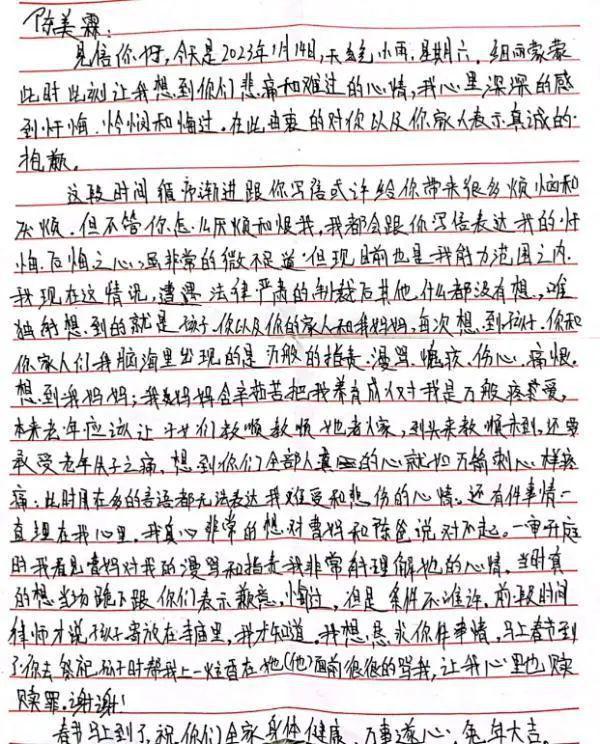 陈美霖:
见信你好,今天是2023年1月14日,天气小雨,星期六。细雨蒙蒙
此时此刻让我想到你们悲痛和难过的心情,我心里深深的感
到忏悔、怜悯和悔过。在此由衷的对你以及你家人表示真诚的
抱歉。
这段时间循序渐进跟你写信或许给你带来很多烦恼和
厌烦。但不管你怎么厌烦和恨我,我都会跟你写信表达我的忏
悔。后悔之心,虽非常的微不足道,但现目前也是我能力范围之内
我现在这情况,遭遇法律严肃的制裁后其他什么都没有想,唯
独就想到的就是孩子、你以及你的家人和我妈妈,每次想到孩子、你和
你家人们我脑海里出现的是万般的指责、漫骂、憔疾、伤心、痛恨。
想到我妈妈;我妈妈含辛茹苦把我养育成仅对我是万般疼爱,
本来老年应该让子女们教顺教顺她老人家,到头来教顺未到,还要
承受老年失子之痛,想到你们全部人真的心就如万箭刺心一样疼
痛;此时用在多的言语都无法表达我难受和悲伤的心情。还有件事情一
直埋在我心里。我真心非常的想对曹妈和陈爸说对不起。一审开庭
时我看见曹妈对我的漫骂和指责我非常能理解她的心情,当时真
的想当场跪下跟你们表示歉意,悔过,但是条件不准许。前段时间
律师才说孩子寄放在寺庙里,我才知道,我想恳求你件事情,马上春节到
了你去祭祀孩子时帮我上一炷香在她(他)面前很很的骂我,让我心里也赎
赎罪。谢谢!
春节马上到了,祝你们全家身体健康、万事遂心、兔年大吉。